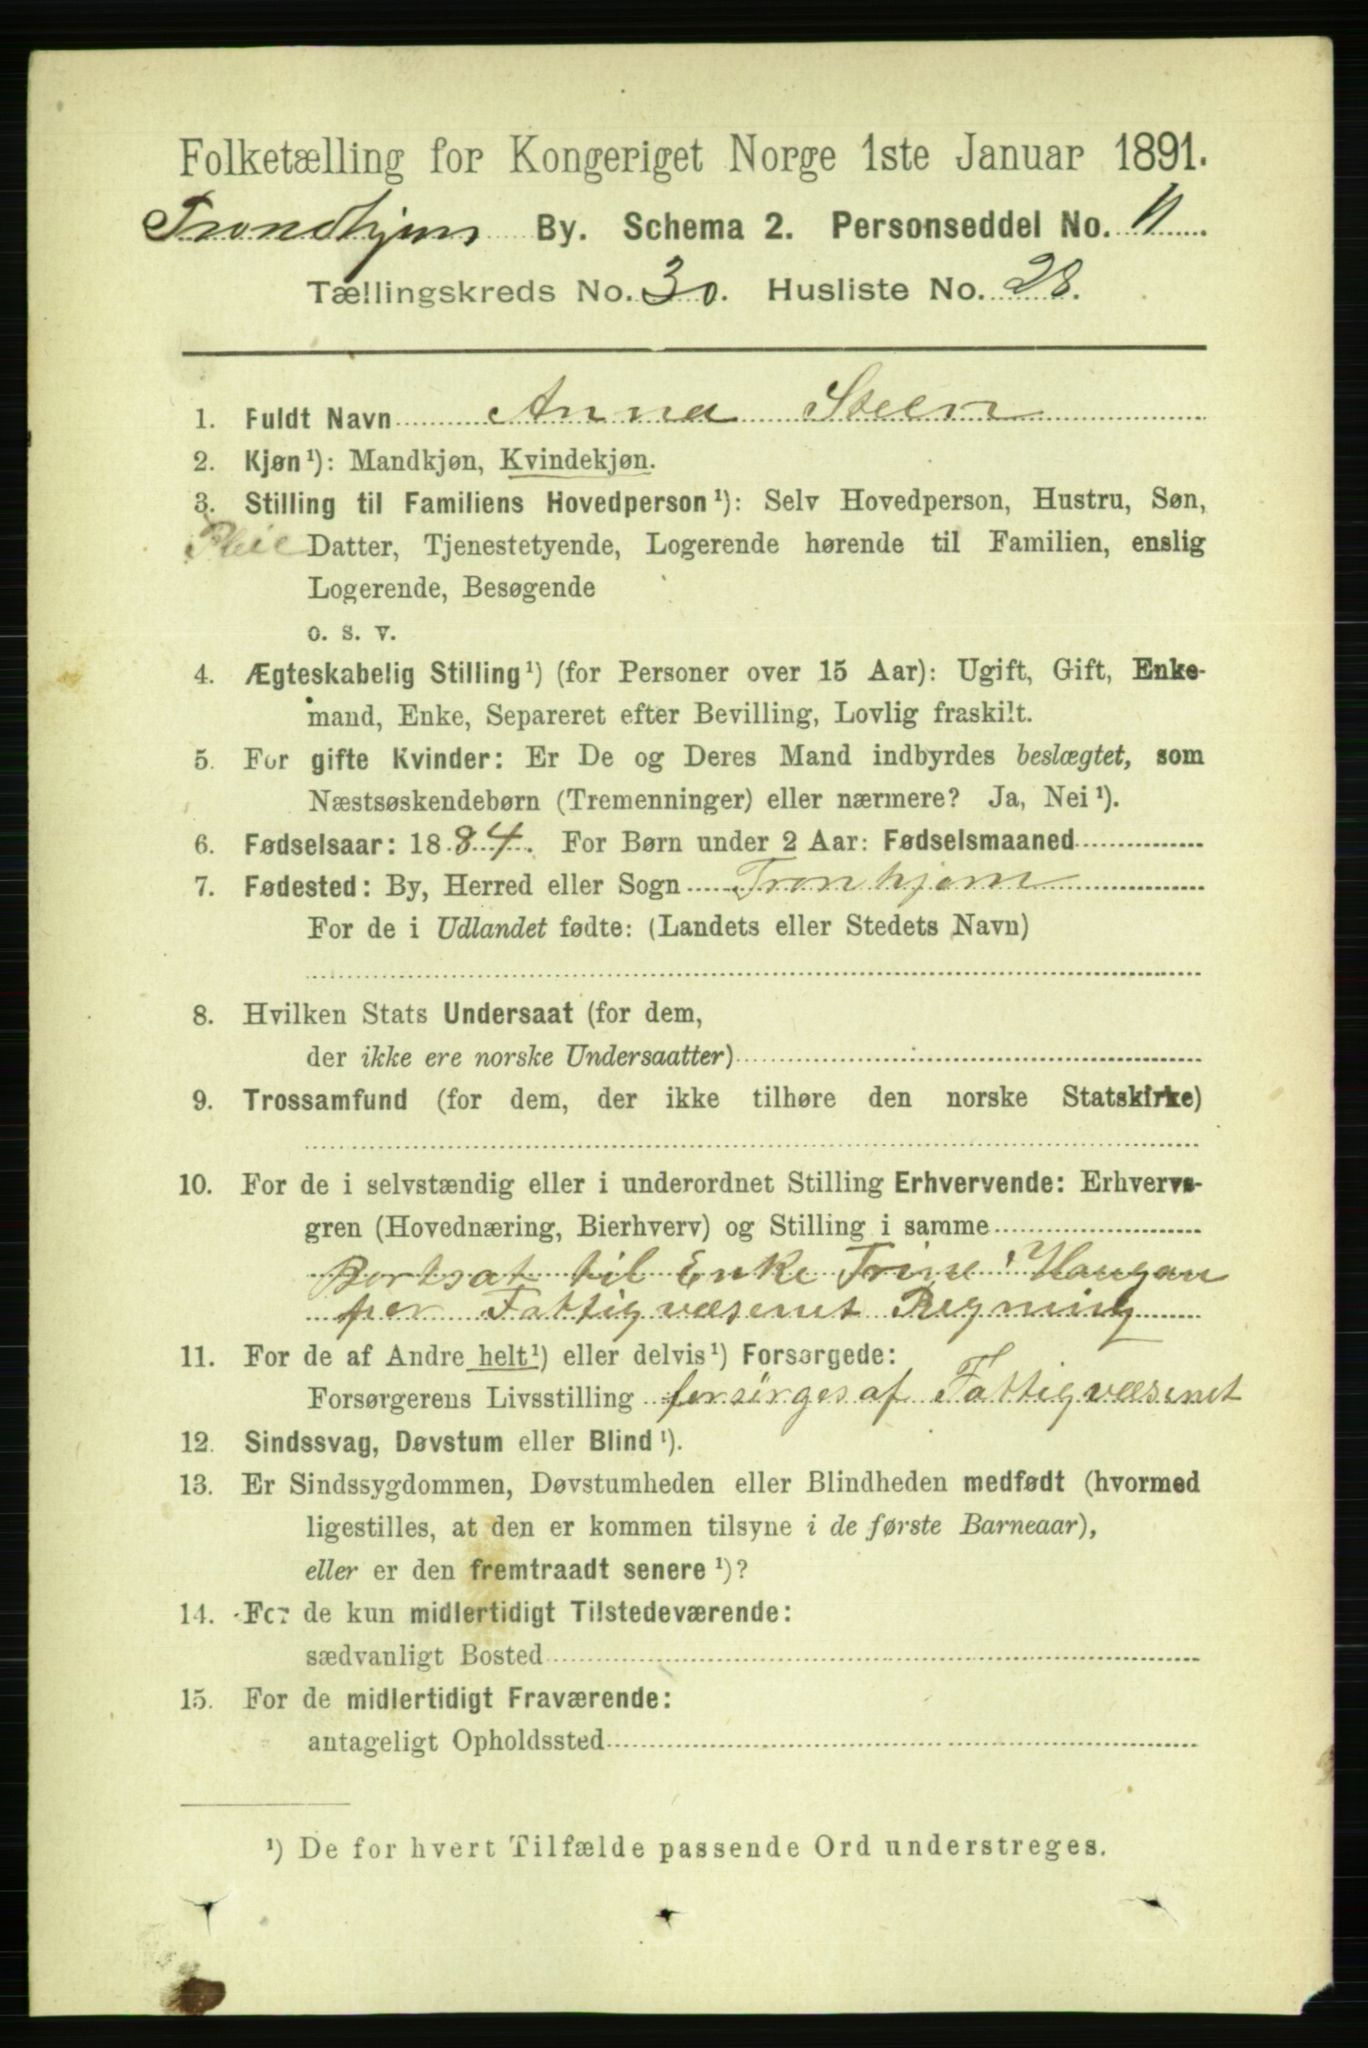 Folketælling for Kongeriget Norge 1ste Januar 1891.
Trondhjem By. Schema 2. Personseddel No. 11
Tællingskreds No. 30. Husliste No. 28.
1. Fuldt Navn Anna Steen
2. Kjøn¹): Mandkjøn, Kvindekjøn.
3. Stilling til Familiens Hovedperson¹): Selv Hovedperson, Hustru, Søn,
Pleie Datter, Tjenestetyende, Logerende hørende til Familien, enslig
Logerende, Besøgende
o. s. v.
4. Ægteskabelig Stilling¹) (for Personer over 15 Aar): Ugift, Gift, Enke-
mand, Enke, Separeret efter Bevilling, Lovlig fraskilt.
5. For gifte Kvinder: Er De og Deres Mand indbyrdes beslægtet, som
Næstsøskendebørn (Tremenninger) eller nærmere? Ja, Nei¹).
6. Fødselsaar: 1884. For Børn under 2 Aar: Fødselsmaaned
7. Fødested: By, Herred eller Sogn Tronhjem
For de i Udlandet fødte: (Landets eller Stedets Navn)
8. Hvilken Stats Undersaat (for dem,
der ikke ere norske Undersaatter)
9. Trossamfund (for dem, der ikke tilhøre den norske Statskirke)
10. For de i selvstændig eller i underordnet Stilling Erhvervende: Erhvervs-
gren (Hovednæring, Bierhverv) og Stilling i samme
Bortsat til Enke Trine Haugan
per Fattigvæsenet Regning
11. For de af Andre helt¹) eller delvis¹) Forsørgede:
Forsørgerens Livsstilling forsörges af Fattigvæsenet
12. Sindssvag, Døvstum eller Blind¹).
13. Er Sindssygdommen, Døvstumheden eller Blindheden medfødt (hvormed
ligestilles, at den er kommen tilsyne i de første Barneaar),
eller er den fremtraadt senere¹)?
14. For de kun midlertidigt Tilstedeværende:
sædvanligt Bosted
15. For de midlertidigt Fraværende:
antageligt Opholdssted
¹) De for hvert Tilfælde passende Ord understreges.